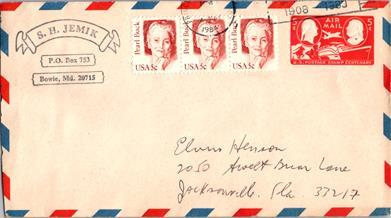 S. H. JEMIK
P.O. Box 753
Bowie, Md. 20715
1908 - 1983
1984
Pearl Buck
USA 5c
Pearl Buck
USA 5c
Pearl Buck
USA 5c
AIR
MAIL
5¢
5¢
U.S. POSTAGE STAMP CENTENARY
Elvin Henson
2050 Sweet Briar Lane
Jacksonville, Fla. 33217